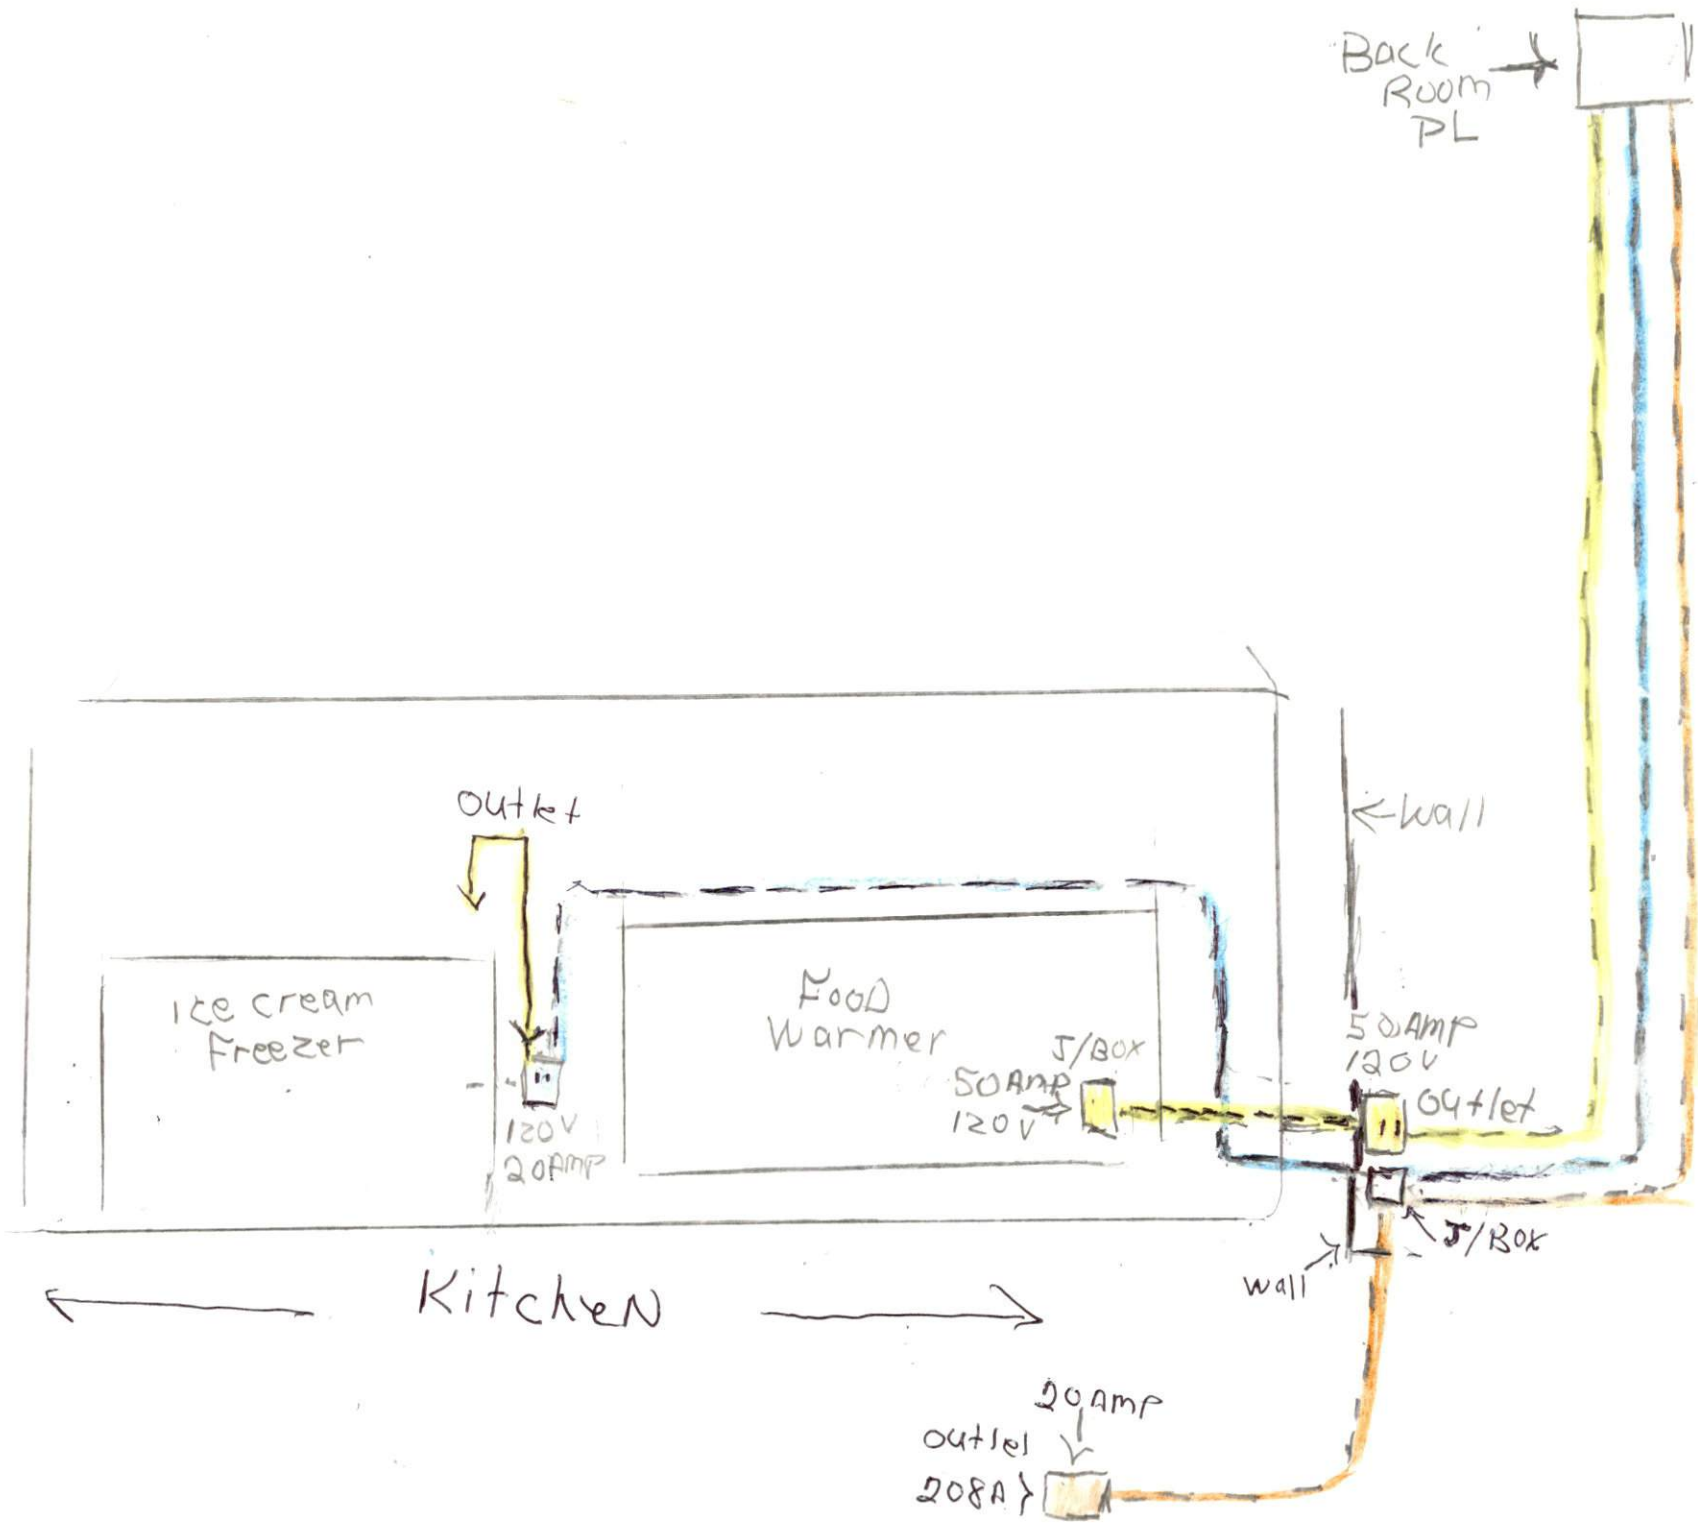 Back
Room
PL
Outlet
← Wall
Ice cream
Freezer
Food
Warmer
J/Box
50 Amp
120V
50 Amp
120V
Outlet
120V
20 Amp
J/Box
Wall
Kitchen
20 Amp
Outlet
208A }